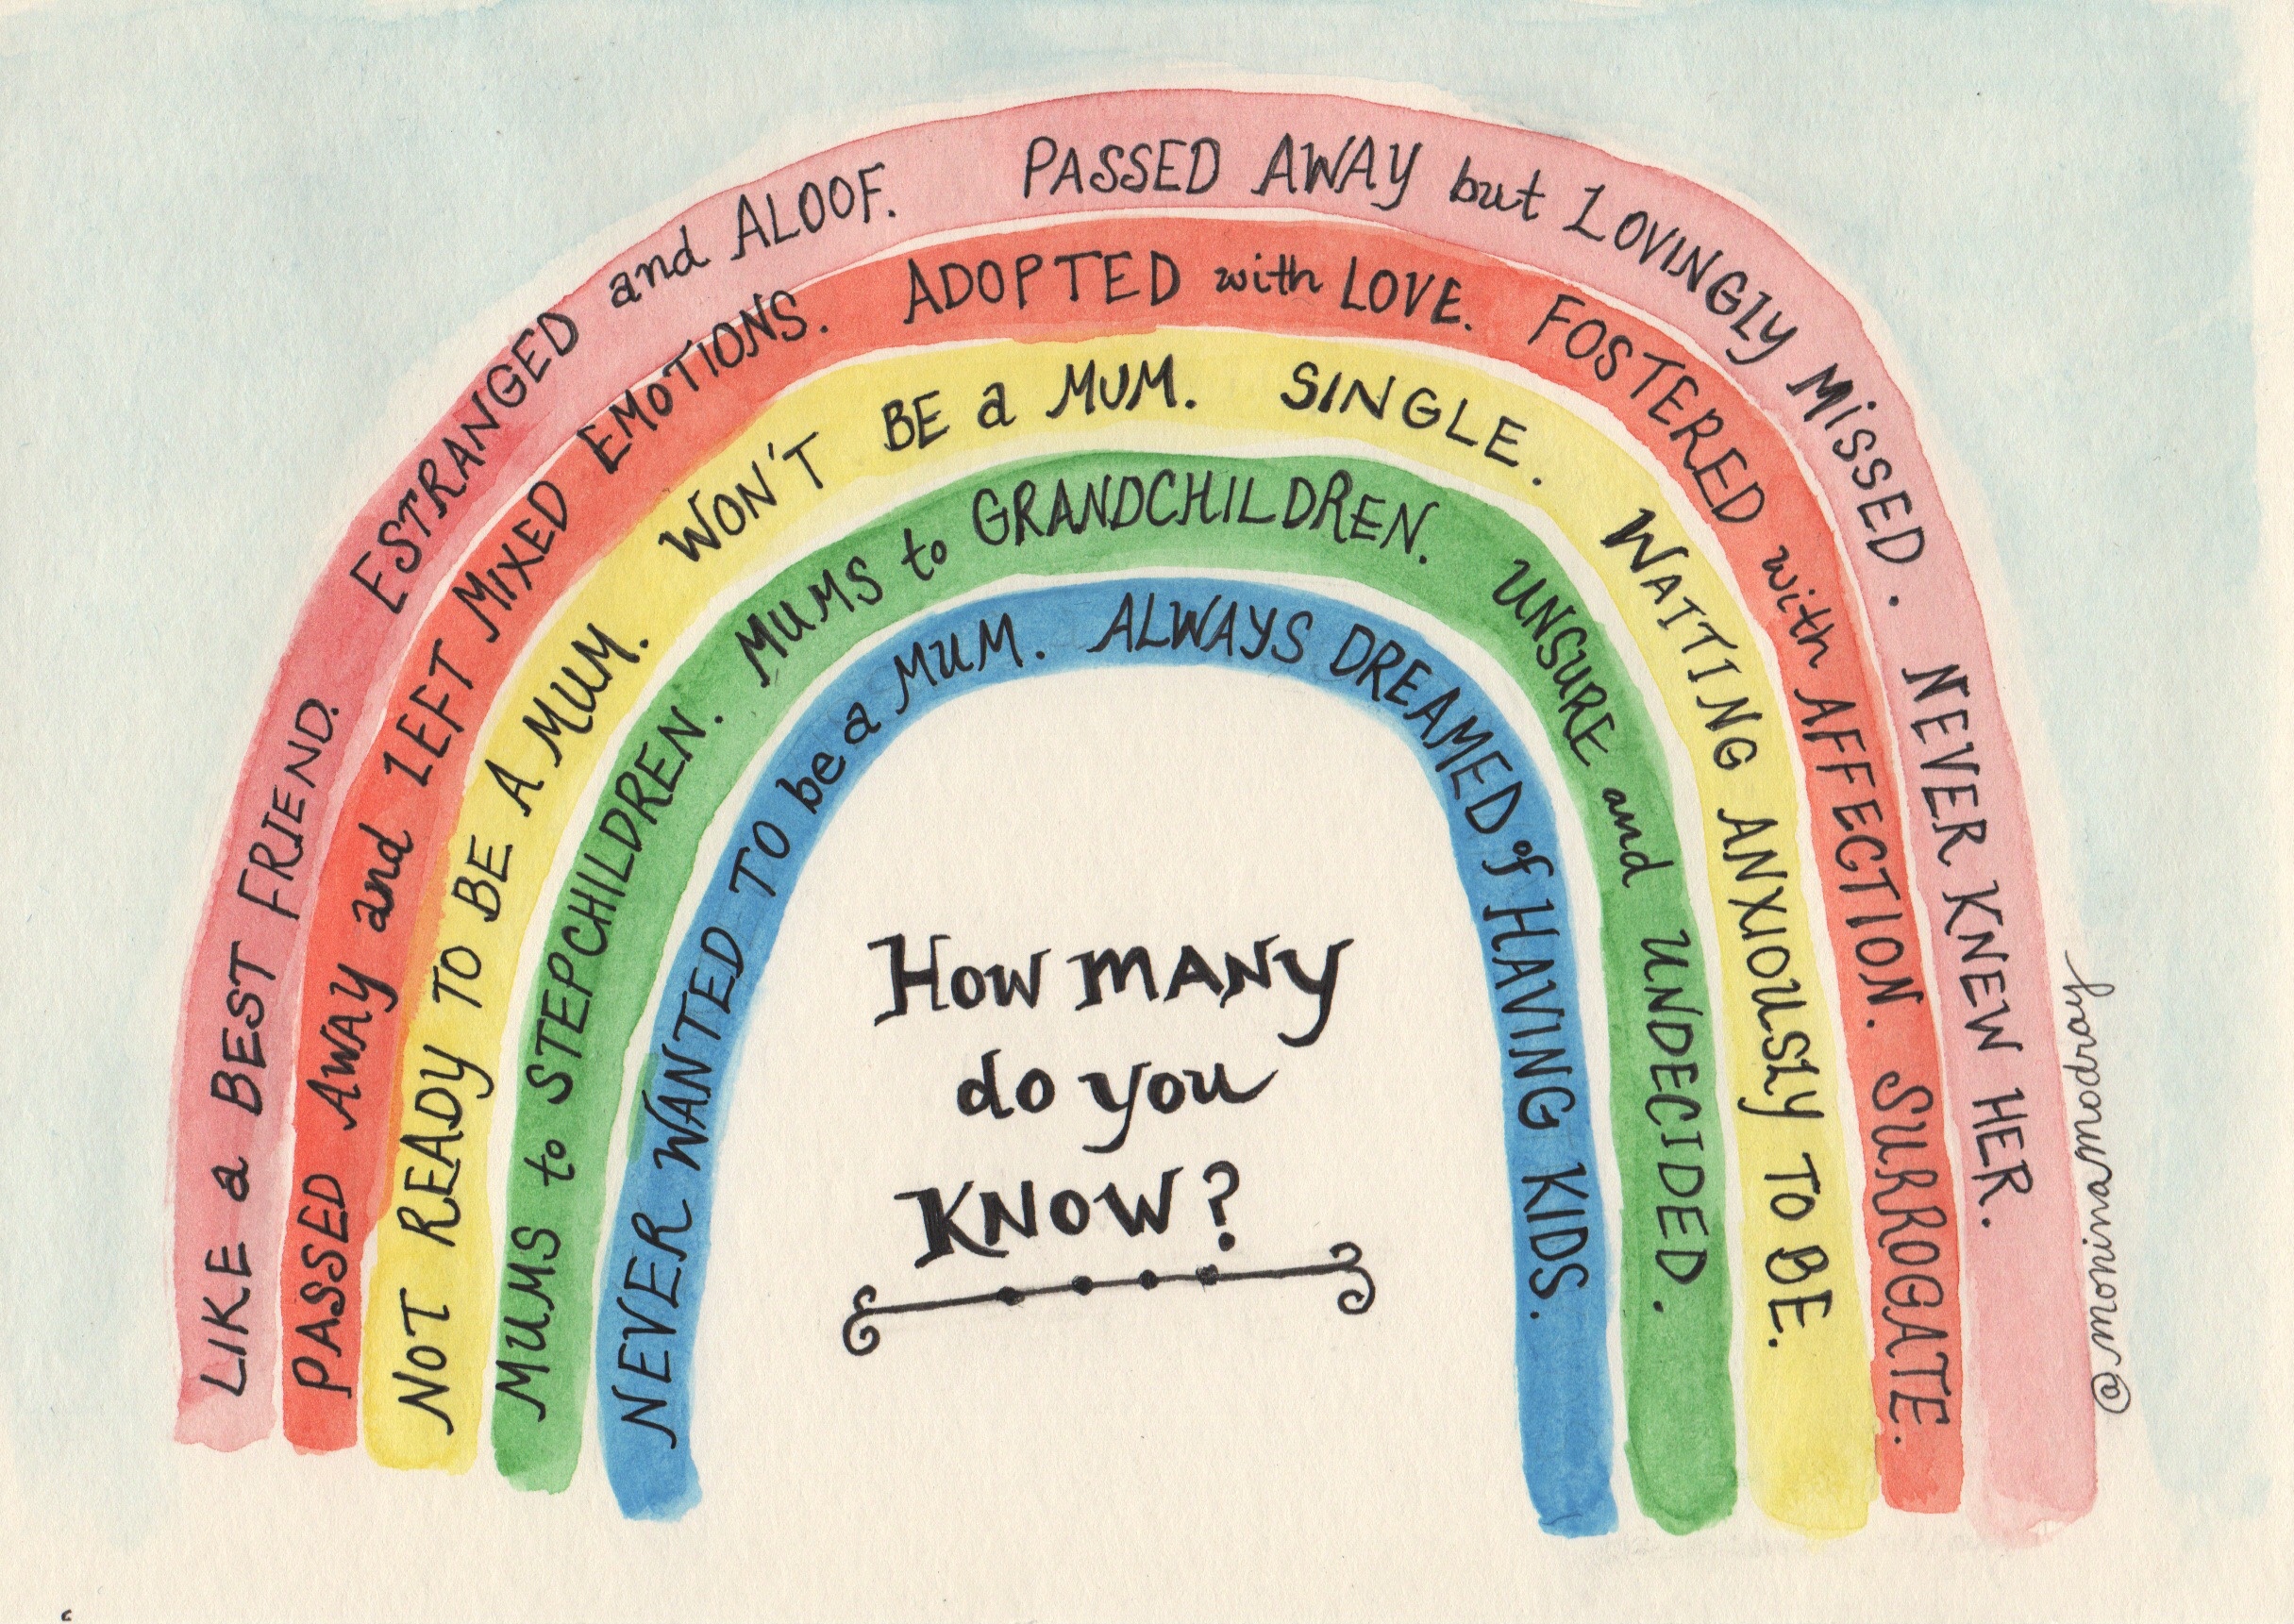 LIKE a BEST FRIEND. ESTRANGED and ALOOF. PASSED AWAY but LOVINGLY MISSED. NEVER KNEW HER.
PASSED AWAY and LEFT MIXED EMOTIONS. ADOPTED with LOVE. FOSTERED with AFFECTION. SURROGATE.
NOT READY TO BE A MUM. WON'T BE a MUM. SINGLE. WAITING ANXIOUSLY TO BE.
MUMS to STEPCHILDREN. MUMS to GRANDCHILDREN. UNSURE and UNDECIDED.
NEVER WANTED TO be a MUM. ALWAYS DREAMED of HAVING KIDS.
HOW MANY
do you
KNOW?
@moninamodray